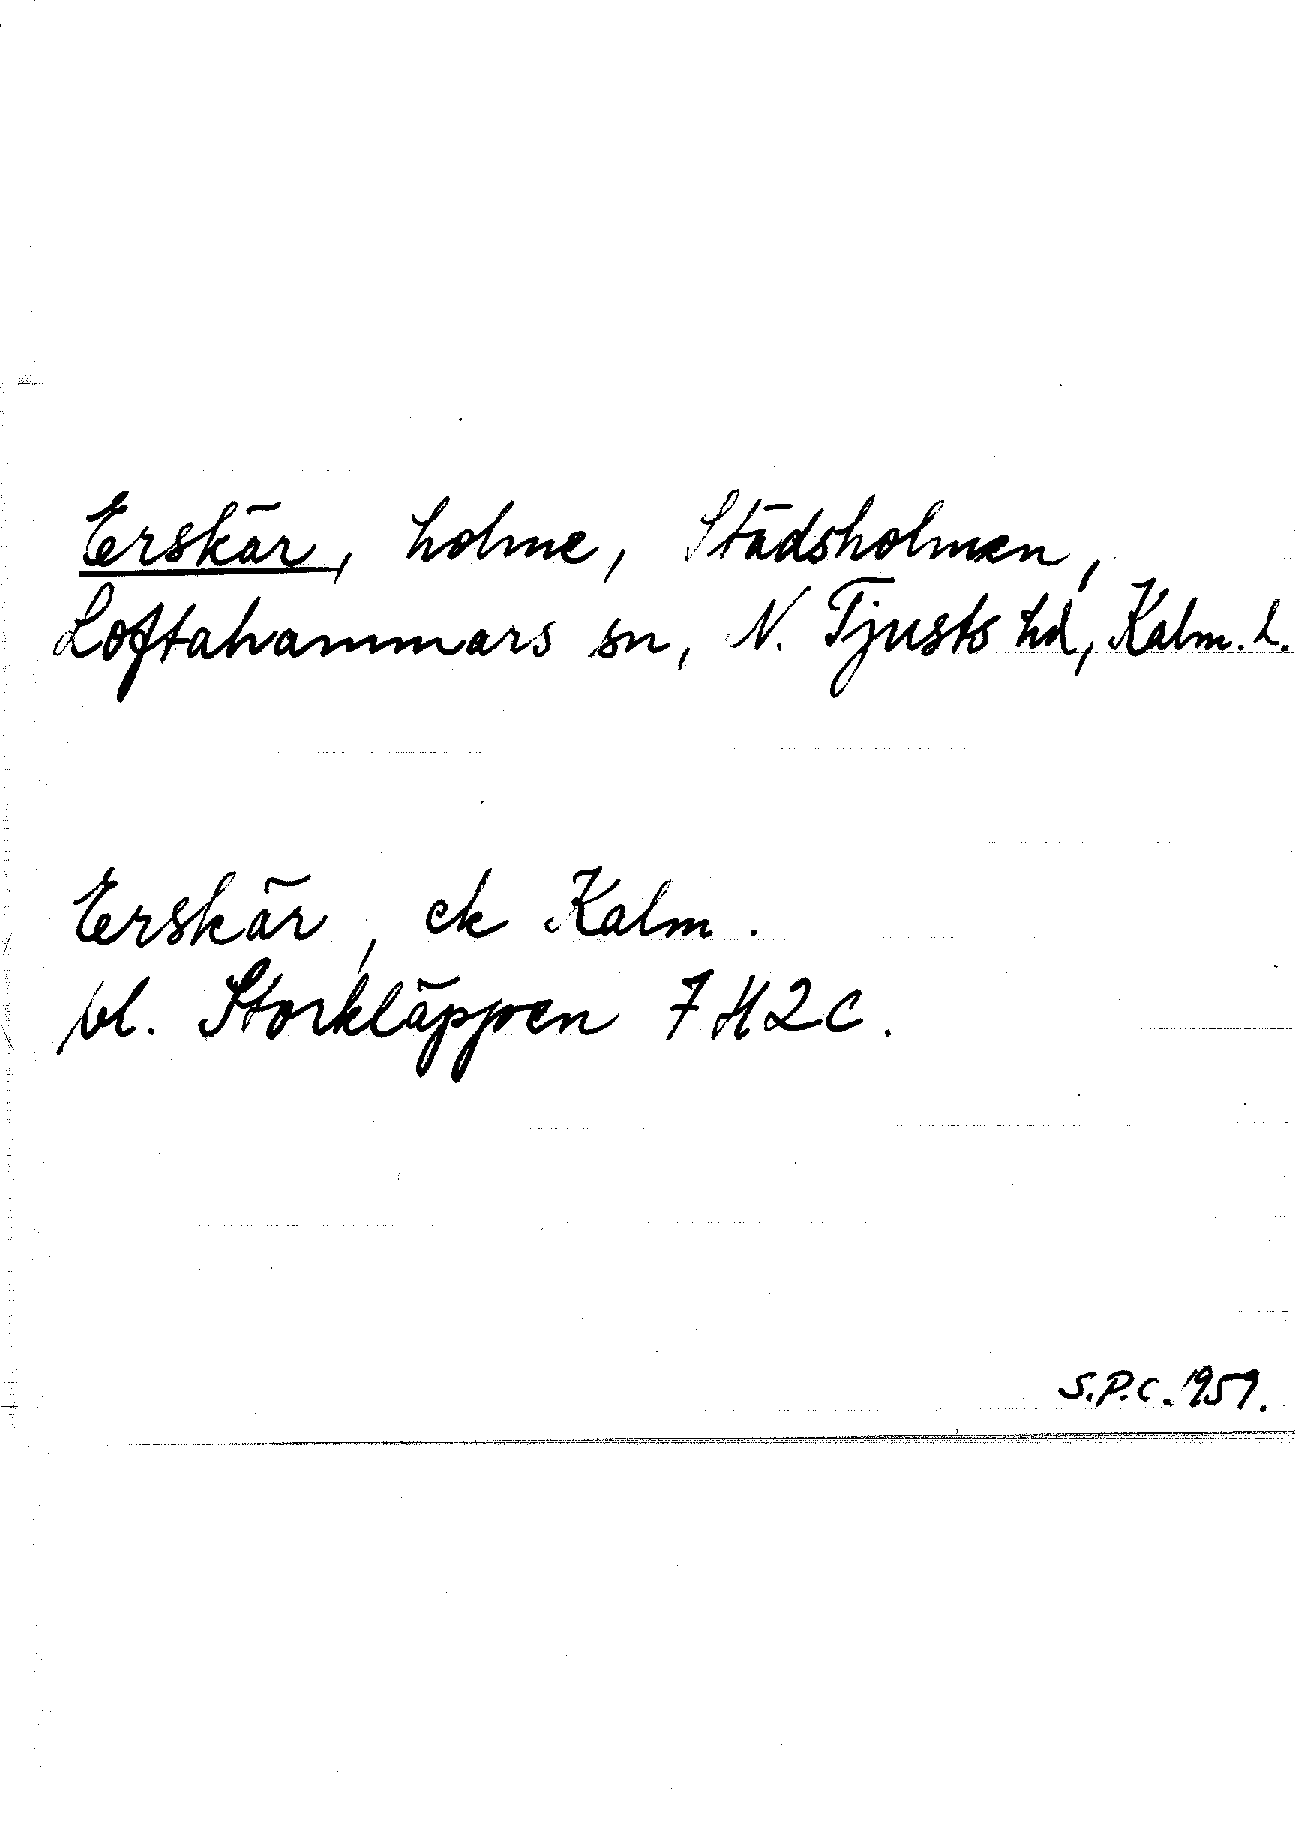 Erskär, holme, Städsholmen,
Loftahammars sn, N. Tjusts hd, Kalm. L.
Erskär, ek Kalm.
bl. Storkläppen 7H2c.
S.P.C. 1959.